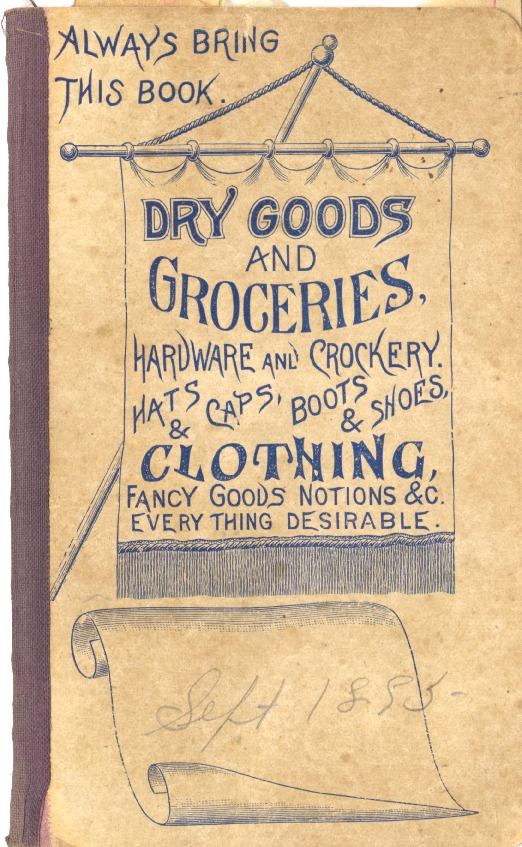 ALWAYS BRING
THIS BOOK.
DRY GOODS
AND
GROCERIES,
HARDWARE AND CROCKERY.
HATS & CAPS, BOOTS & SHOES,
CLOTHING,
FANCY GOODS NOTIONS &C.
EVERY THING DESIRABLE.
Sept 1895-